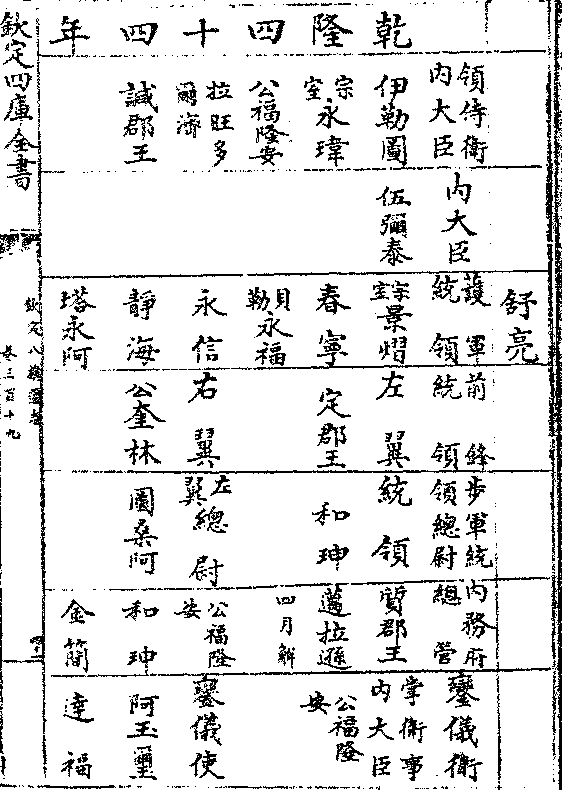 乾隆四十四年
領侍衛
內大臣
伊勒圖
宗室永瑋
公福隆安
拉旺多
爾濟
誠郡王
內大臣
伍彌泰
舒亮
護軍
統領
宗室景熠
春寧
貝勒永福
永信
靜海
塔永阿
前鋒
統領
左翼
定郡王
右翼
公奎林
步軍統
領總尉
統領
和珅
左翼總尉
圖桑阿
內務府
總管
質郡王
邁拉遜
四月解
公福隆
安
和珅
金簡
鑾儀衛
掌衛事
內大臣
公福隆
安
鑾儀使
阿玉璽
達福
欽定四庫全書
欽定八旗通志
卷三百十九